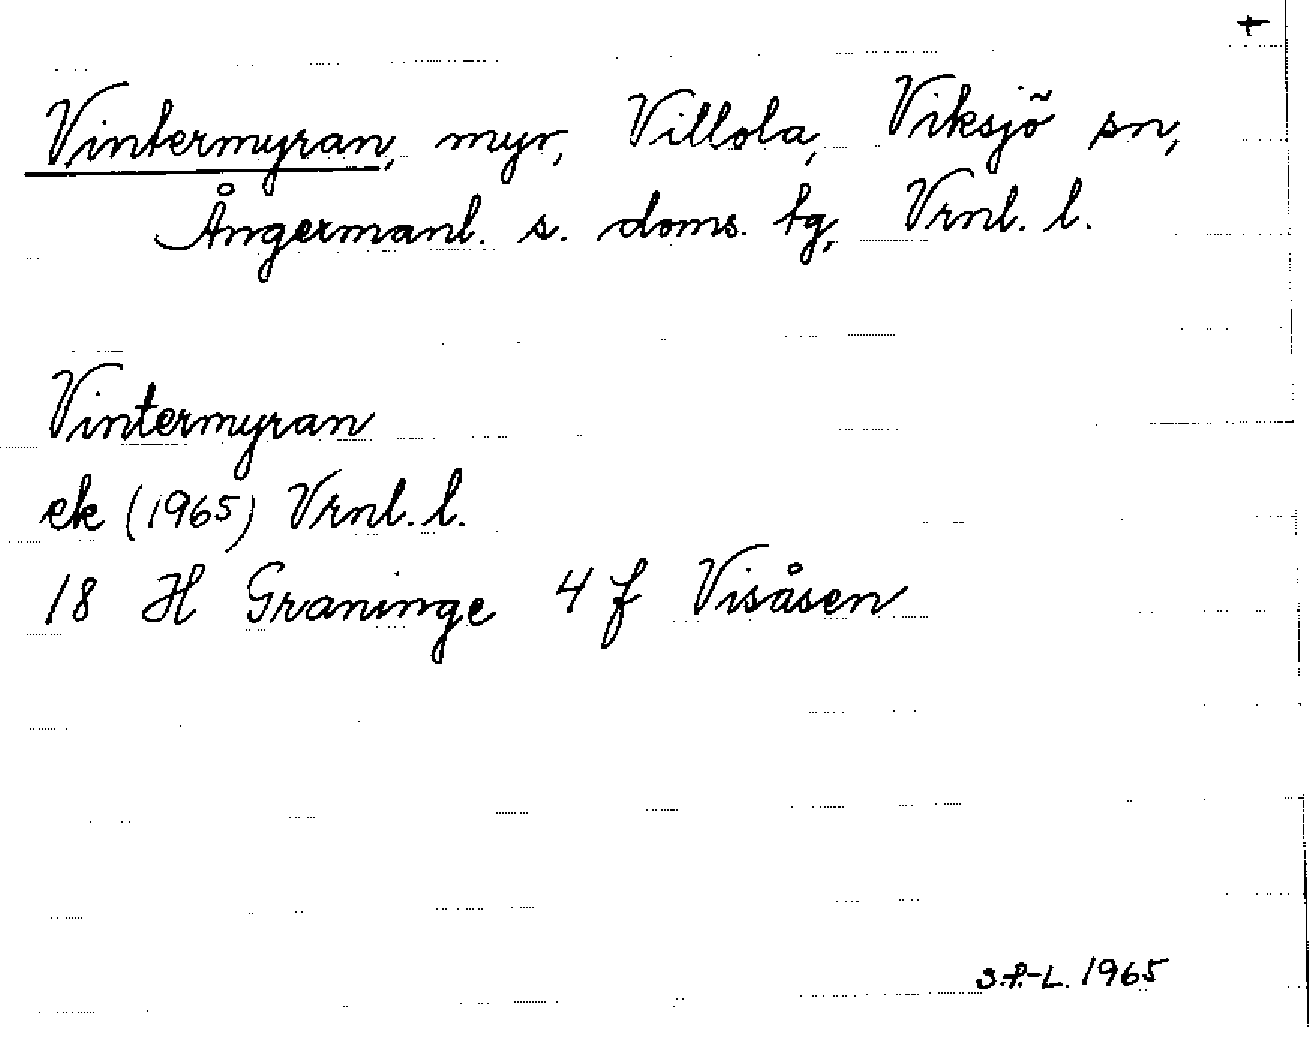 +
Vintermyran, myr, Villola, Viksjö sn,
Ångermanl. s. doms. tg, Vrnl. l.
Vintermyran
ek (1965) Vrnl. l.
18 H Graninge 4 f Visåsen
S.P-L. 1965